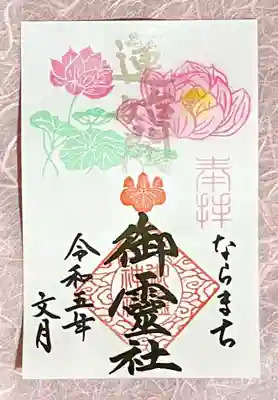 奉拝
ならまち
御霊社
令和五年
文月